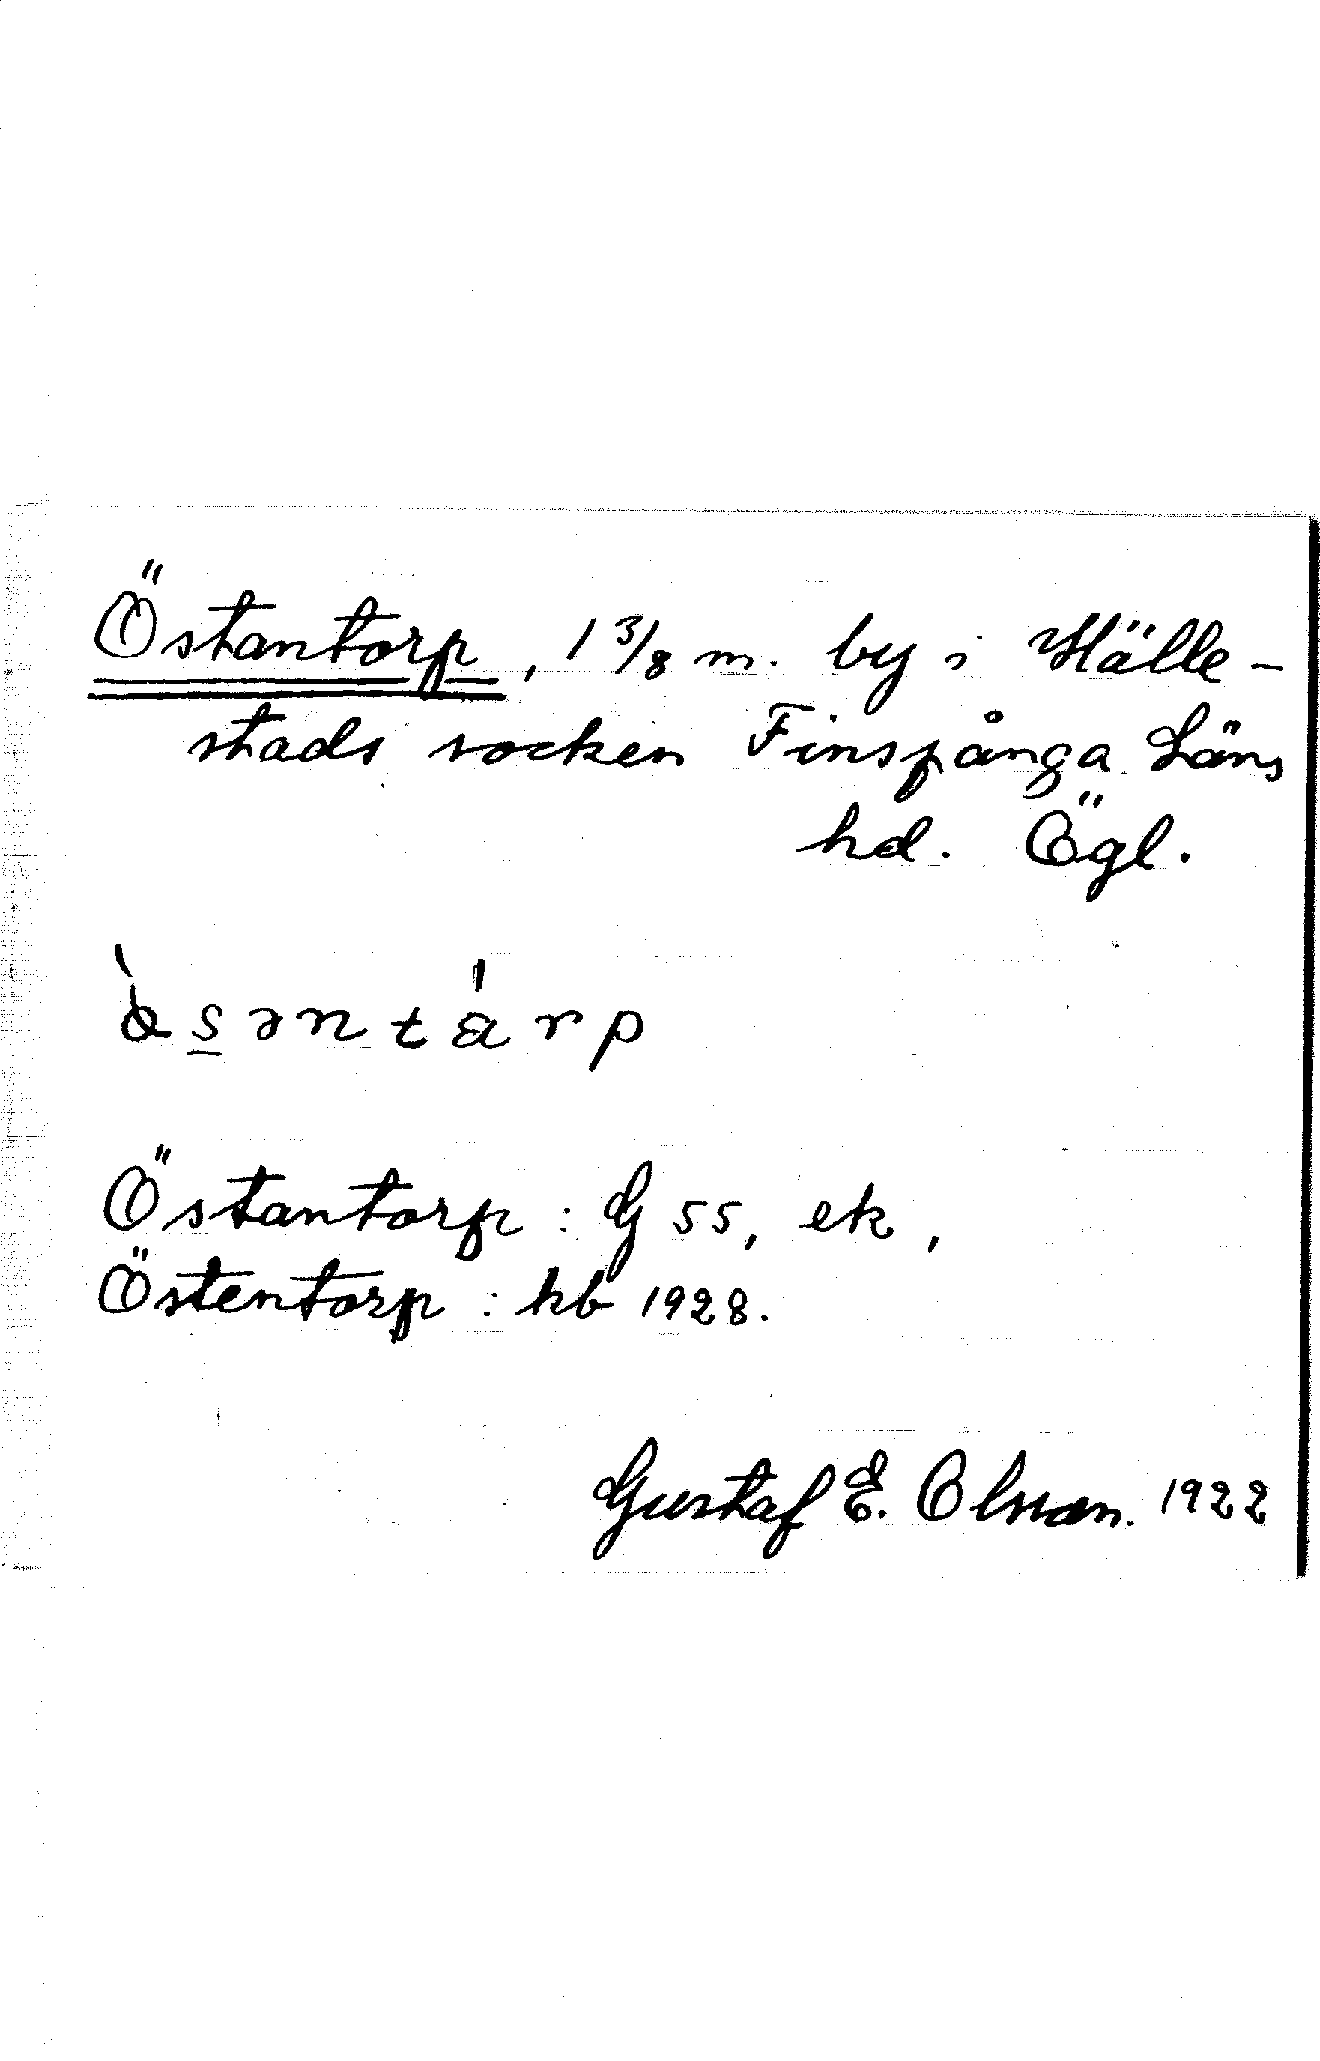 Östantorp, 1 3/8 m. by i Hälle-
stads socken Finspånga Läns
hd. Ögl.
Östantorp : G 55, ek,
Östentorp : hb 1928.
Gustaf E. Olsson. 1922